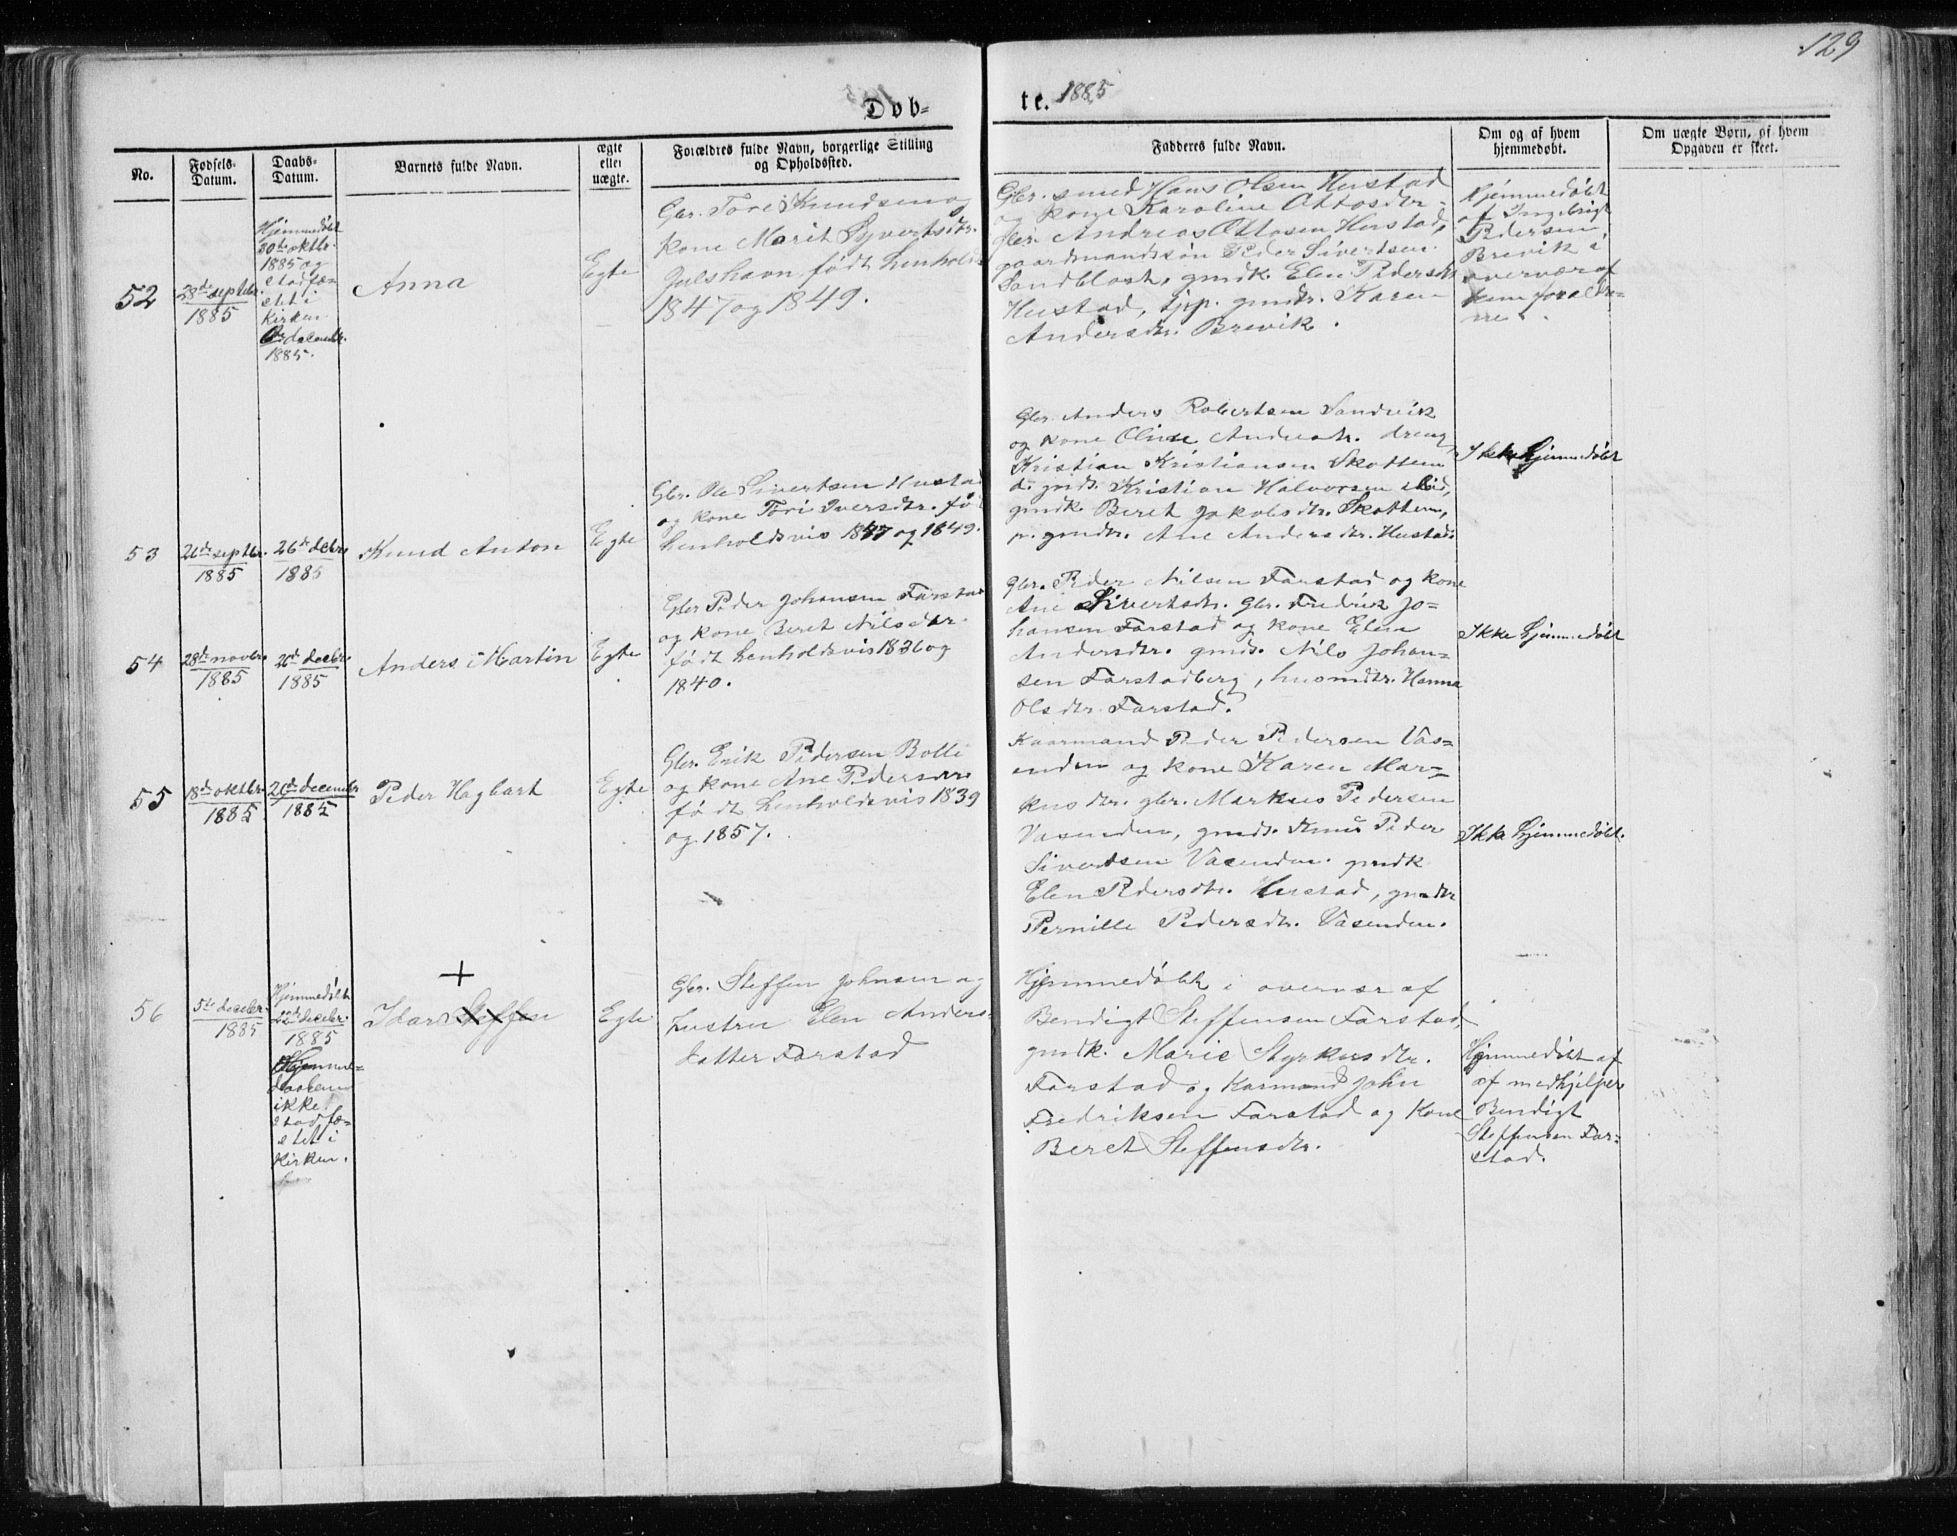 129
Døb-
te. 1885
No.
Fødsels-
Datum.
Daabs-
Datum.
Barnets fulde Navn.
ægte
eller
uægte.
Forældres fulde Navn, borgerlige Stilling
og Opholdssted.
Fadderes fulde Navn.
Om og af hvem
hjemmedøbt.
Om uægte Børn, af hvem
Opgaven er skeet.
52
28de septbr.
1885
Hjemmedøbt
30te oktbr.
1885 og
stadfæ-
stet i
Kirken
decembr.
1885.
Anna
Egte
Gbr. Tore Knudsen og
kone Marit Syvertsdtr.
Julshavn født henholds
1847 og 1849.
Gbr. smed Hans Olsen Hustad
og kone Karoline Ottosdtr.
Gbr. Andreas Ottosen Hustad,
gaardmandssøn Peder Sivertsen
Sandblost, gmdk. Elen Pedersdtr
Hustad, gmdtr. Karen
Andersdtr. Brevik.
Hjemmedøbt
af Ingebrigt
Pedersen,
Brevik i
overvær af
forældre-
ne.
53
26de septbr.
1885
26de debr.
1885
Knud Anton
Egte
Gbr. Ole Sivertsen Hustad
og kone Tori Iversdtr. fø
henholdsvis 1847 og 1849.
Gbr. Anders Robertsen Sandvik
og kone Oline Andersdtr. dreng
Kristian Kristiansen Skottem
gmds. Kristian Halvorsen
gmdk. Beret Jakobsdtr. Skottem,
p. gmdtr. Ane Andersdtr. Hustad.
Ikke hjemmedøbt
54
28de novbr.
1885
26de decbr.
1885
Anders Martin
Egte
Gbr Peder Johansen Farstad
og kone Beret Nilsdtr.
født henholdsvis 1836 og
1840.
Gbr. Peder Nilsen Farstad og kone
Ane Sivertsdtr. Gbr. Fredrik Jo-
hansen Farstad og kone Elen
Andersdtr. gmds. Nils Johan-
sen Farstadberg, husmdtr. Hanna
Olsdtr. Farstad.
Ikke hjemmedøbt
55
18de oktbr.
1885
26de decembr
1885
Peder Hagbart
Egte
Gbr. Erik Pedersen Bolli
og kone Ane Pedersdtr.
født henholdsvis 1839
og 1857.
Kaarmand Peder Pedersen Vas-
enden og kone Karen Mar-
kusdtr. gbr. Markus Pedersen
Vasenden, gmds. Knud Peder
Sivertsen Vasenden. gmdk
Elen Pedersdtr. Hustad, gmdtr
Pernille Pedersdtr. Vasenden.
Ikke hjemmedøbt.
56
5te decebr.
1885
Hjemmedøbt
22de decebr.
1885
Hjemme-
daaben
ikke
stadfæ-
stet i
Kirken.
+
Idar Steffen
Egte
Gbr. Steffen Johnsen og
hustru Elen Anders-
datter Farstad
Hjemmedøbt i overvær af
Bendigt Steffensen Farstad,
gmdk. Marie Styrkersdtr.
Farstad og Karmand John
Fredriksen Farstad og Kone
Beret Steffensdtr.
Hjemmedøbt af
af medhjelper
Bendigt
Steffensen Far-
stad.